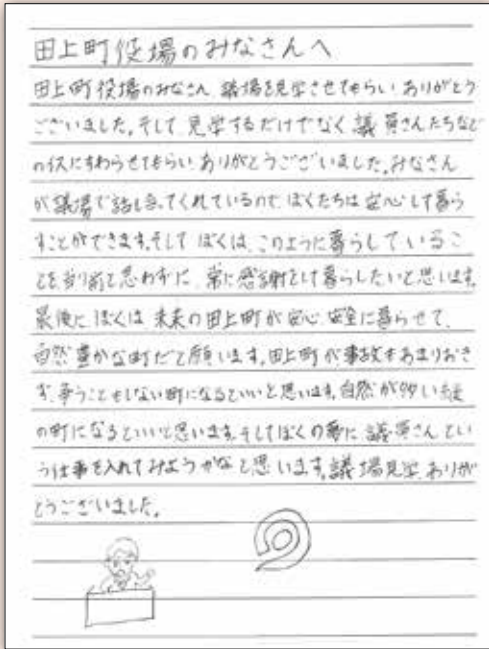 田上町役場のみなさんへ
田上町役場のみなさん、議場を見学させてもらい、ありがとう
ございました。そして、見学するだけでなく、議員さんたちなど
のイスにすわらせてもらい、ありがとうございました。みなさん
が議場で話し合ってくれているので、ぼくたちは安心して暮ら
すことができます。そして、ぼくは、このように暮らしているこ
とを当り前と思わずに、常に感謝をして暮らしたいと思います。
最後に、ぼくは、未来の田上町が安心、安全に暮らせて、
自然豊かな町だと願います。田上町が事故もあまりおき
ず、争うこともしない町になるといいと思います。自然が多い緑
の町になるといいと思います。そしてぼくの夢に、議員さんとい
う仕事を入れてみようかなと思います。議場見学、ありが
とうございました。